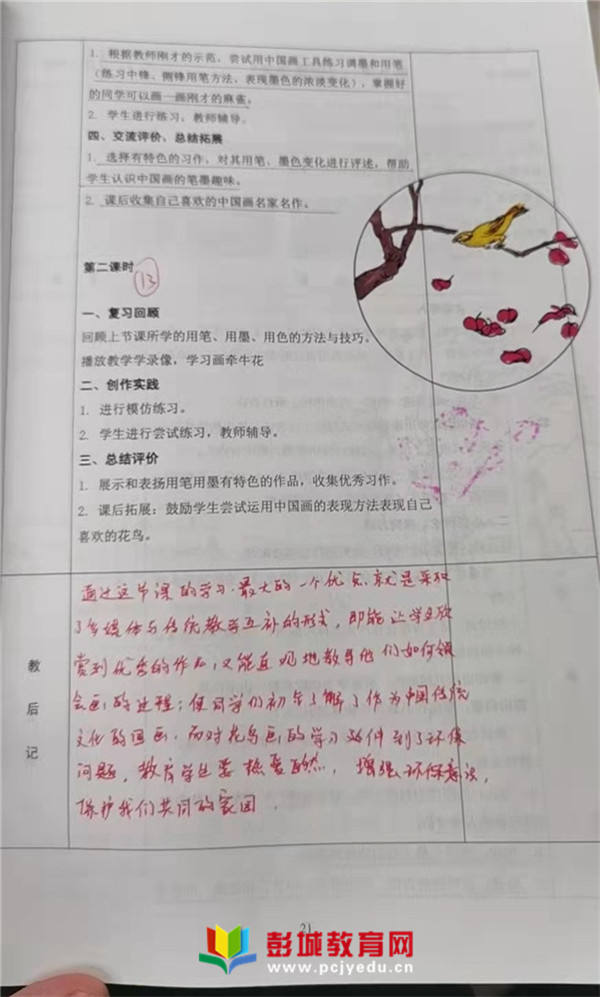 1. 根据教师刚才的示范，尝试用中国画工具练习调墨和用笔
（练习中锋、侧锋用笔方法，表现墨色的浓淡变化），掌握好
的同学可以画一画刚才的麻雀。
2. 学生进行练习，教师辅导。
四、交流评价、总结拓展
1. 选择有特色的习作，对其用笔、墨色变化进行评述，帮助
学生认识中国画的笔墨趣味。
2. 课后收集自己喜欢的中国画名家名作。
第二课时
13
一、复习回顾
回顾上节课所学的用笔、用墨、用色的方法与技巧。
播放教学学录像，学习画牵牛花
二、创作实践
1. 进行模仿练习。
2. 学生进行尝试练习，教师辅导。
三、总结评价
1. 展示和表扬用笔用墨有特色的作品，收集优秀习作。
2. 课后拓展：鼓励学生尝试运用中国画的表现方法表现自己
喜欢的花鸟。
教后记
通过这节课的学习，最大的一个优点就是采取
了多媒体与传统教学互补的形式，即能让学生欣
赏到优秀的作品，又能直观地教导他们如何领
会画的过程；使同学们初步了解了作为中国传统
文化的国画，而对花鸟画的学习延伸到了环保
问题，教育学生要热爱自然，增强环保意识，
保护我们共同的家园。
21
彭城教育网
www.pcjyedu.cn